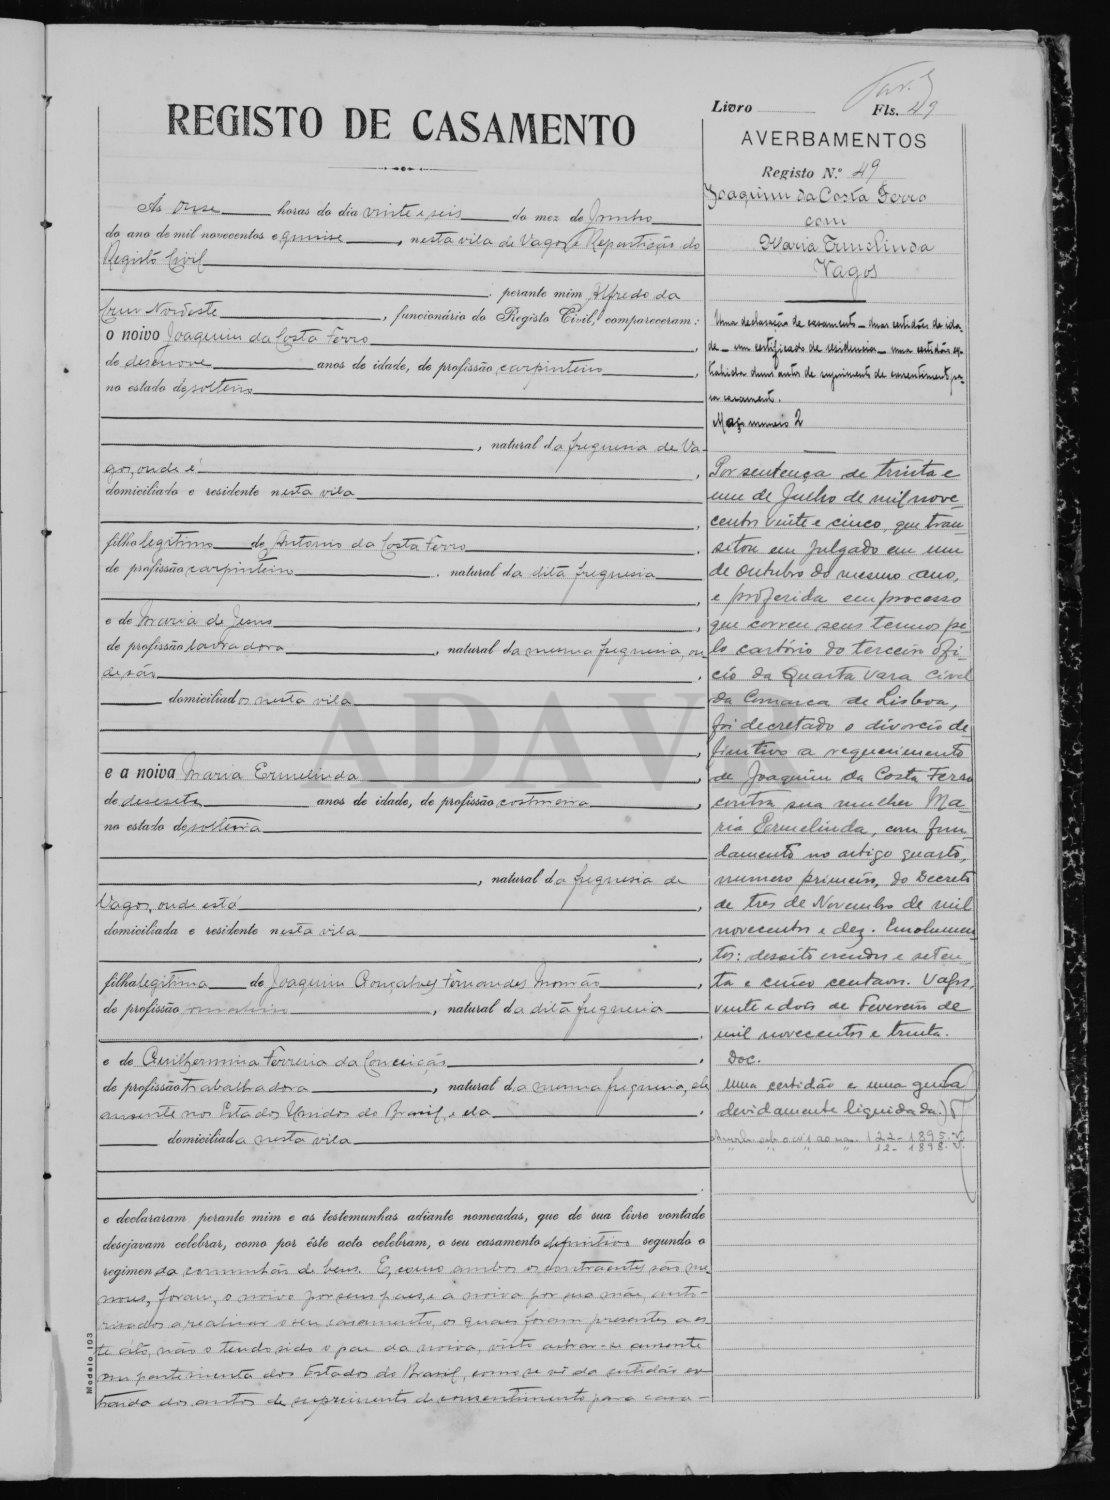 REGISTO DE CASAMENTO
Livro Fls. 49
AVERBAMENTOS
Registo N.º 49
Joaquim da Costa Ferro
com
Maria Ermelinda
Vagos
Uma declaração de casamento — duas certidões de ida-
de — um certificado de residencia — uma certidão ex-
trahida duns autos de suprimento de consentimento pa-
ra casamento.
Maço numero 2
Por sentença de trinta e
um de Julho de mil nove-
centos vinte e cinco, que tran-
sitou em julgado em um
de Outubro do mesmo ano,
e proferida em processo
que correu seus termos pe-
lo cartório do terceiro ofi-
cio da Quarta Vara Civel
da Comarca de Lisboa,
foi decretado o divorcio de-
finitivo a requerimento
de Joaquim da Costa Ferro
contra sua mulher Ma-
ria Ermelinda, com fun-
damento no artigo quarto,
numero primeiro, do Decreto
de tres de Novembro de mil
novecentos e dez. Emolumen-
tos: desoito escudos e seten-
ta e cinco centavos. Vagos,
vinte e dois de Fevereiro de
mil novecentos e trinta.
Doc.
Uma certidão e uma guia
devidamente liquidada.
122-1895
12-1898
Ás onse horas do dia vinte e seis do mez de Junho
do ano de mil novecentos e quinse, nesta vila de Vagos e Repartição do
Registo Civil
perante mim Alfredo da
Cruz Nordeste, funcionário do Registo Civil, compareceram:
o noivo Joaquim da Costa Ferro,
de desenove anos de idade, de profissão carpinteiro,
no estado de solteiro
, natural da freguesia de Va-
gos, onde é,
domiciliado e residente nesta vila
filho legitimo de Antonio da Costa Ferro,
de profissão carpinteiro, natural da dita freguesia
e de Maria de Jesus,
de profissão lavradora, natural da mesma freguesia, on-
de são,
domiciliados nesta vila
e a noiva Maria Ermelinda,
de desesete anos de idade, de profissão costureira,
no estado de solteira
, natural da freguesia de
Vagos, onde está,
domiciliada e residente nesta vila
filha legitima de Joaquim Gonçalves Fernandes Mourão,
de profissão, natural da dita freguesia
e de Guilhermina Ferreira da Conceição,
de profissão trabalhadora, natural da mesma freguesia, ele
ausente nos Estados Unidos do Brasil, e ela,
domiciliada nesta vila
e declararam perante mim e as testemunhas adiante nomeadas, que de sua livre vontade
desejavam celebrar, como por êste acto celebram, o seu casamento definitivo segundo o
regimen da comunhão de bens. E, como ambos os contraentes são me-
nores, foram, o noivo por seus paes, e a noiva por sua mãe, auto-
risados a realisar o seu casamento, os quaes foram presentes a es-
te áto, não o tendo sido o pae da noiva, visto achar-se ausente
em parte incerta dos Estados do Brasil, como se vê da certidão ex-
traída dos autos de suprimento de consentimento para casa-
Modelo 103
ADAVR